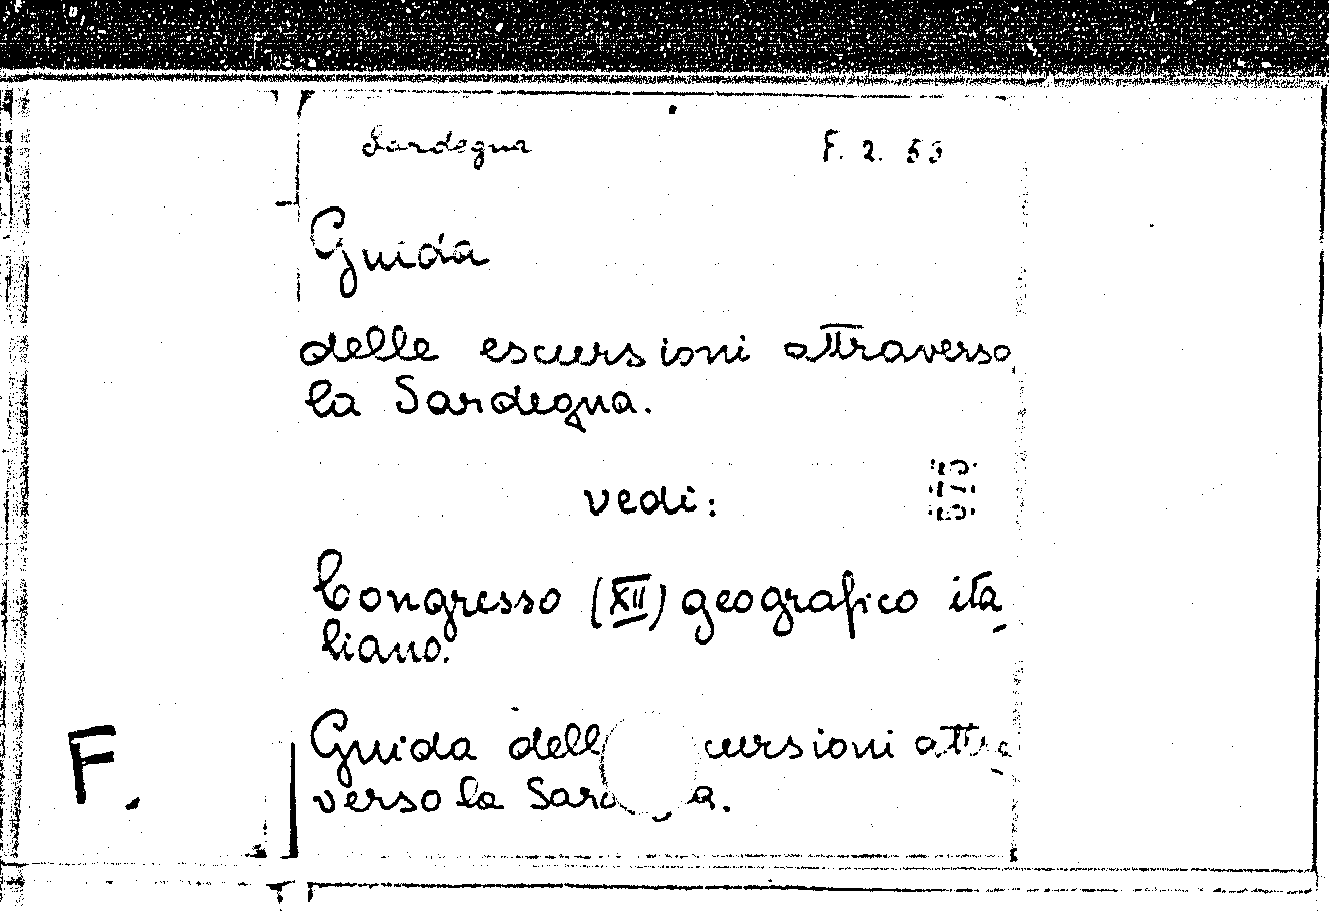 Sardegna F. 2. 53
Guida
delle escursioni attraverso
la Sardegna.
575
vedi:
Congresso (XII) geografico ita-
liano.
Guida dell cursioni attra-
verso la Sardegna.
F.